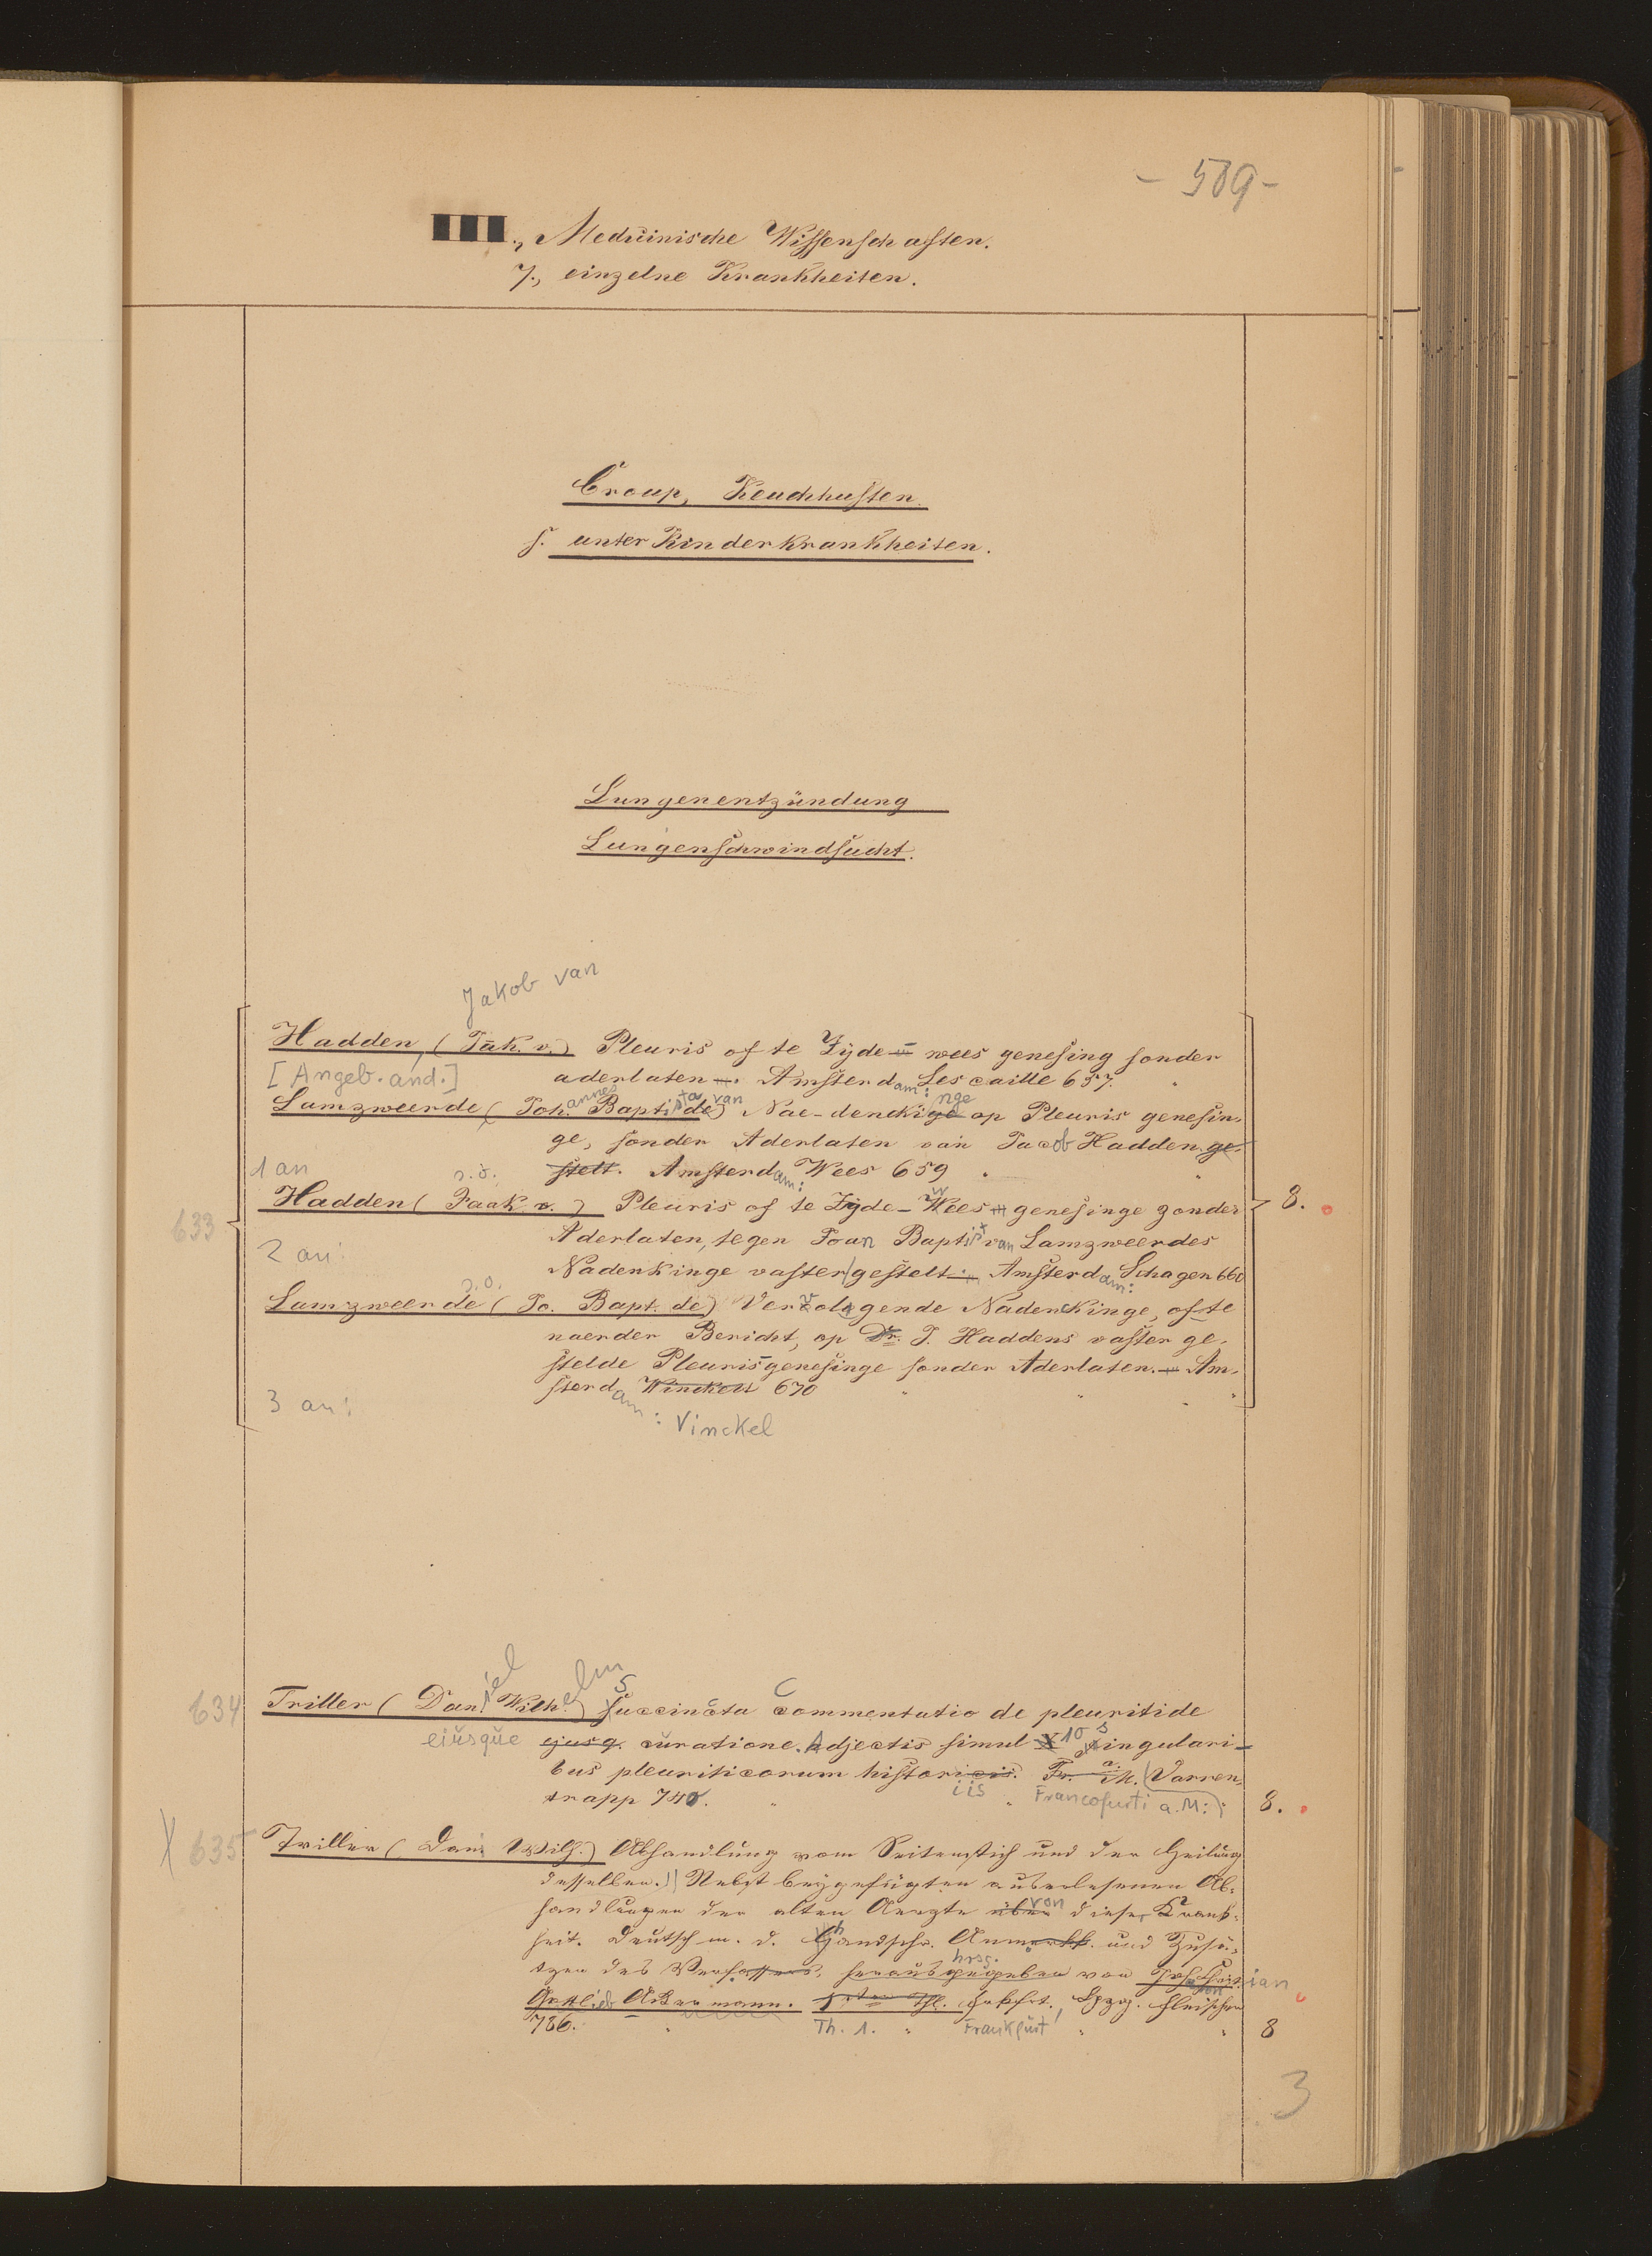 - 589 -
III., Medicinische Wissenschaften.
7., einzelne Krankheiten.
Croup, Keuchhusten.
s. unter Kinderkrankheiten.
Lungenentzündung
Lungenschwindsucht.
Jakob van
Hadden, (Jak. v.) Pleuris of te Zijde- wees genesing sonder
[Angeb. and.] aderlaten. Amsterdam: Lescaille 657.
Lamzweerde (Johannes Baptista de van) Nae-denckinge op Pleuris genesin-
ge, sonder Aderlaten van Jacob Hadden. ge-
1 an stelt. Amsterdam: Wees 659
s. o.
Hadden (Jaak v.) Pleuris of te Zyde-Wees genesinge zonder 8.
633 Aderlaten, tegen Joan Baptist van Lamzweerdes
2 an: Nadenkinge vaster gestelt. Amsterdam: Schagen 660
s. o.
Lamzweerde (Jo. Bapt. de) Vervolgende Nadenckinge, ofte
naerder Bericht, op Dr. J. Haddens vaster ge-
stelde Pleurisgenesinge sonder Aderlaten. Am-
3 an: sterdam: Winckel 670
Vinckel
634 Triller (Daniel Wilhelm) Succincta Commentatio de pleuritide
eiusque ejusq. curatione. Adjectis simul X 10 singulari-
bus pleuriticorum historiis. Fr. a. M. Varren-
trapp 740. Francofurti a. M.: 8.
X 635 Triller (Dan. Wilh.) Abhandlung vom Seitenstich und der Heilung
desselben. Nebst beygefügten auserlesenen Ab-
handlungen der alten Aerzte über von dieser Krank-
heit. Deutsch m. d. handschr. Anmerkk. und Zusä-
tzen des Verfassers, hrsg. herausgegeben von Joh. Christian
Gottlieb Ackermann. Frkfrt. Lpzg. Fleischer
786. Th. 1. Frankfurt 8
3